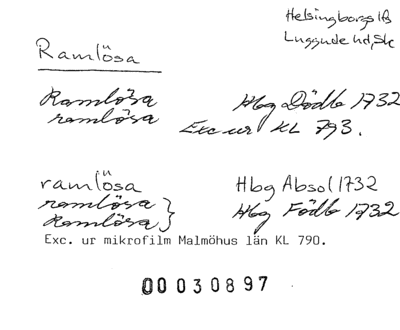 Helsingborgs lfs
Luggude hd, Sk
Ramlösa
Ramlösa Hbg Dödb 1732
ramlösa Exc ur KL 793.
ramlösa Hbg Absol 1732
ramlösa }
Ramlösa } Hbg Födb 1732
Exc. ur mikrofilm Malmöhus län KL 790.
00030897